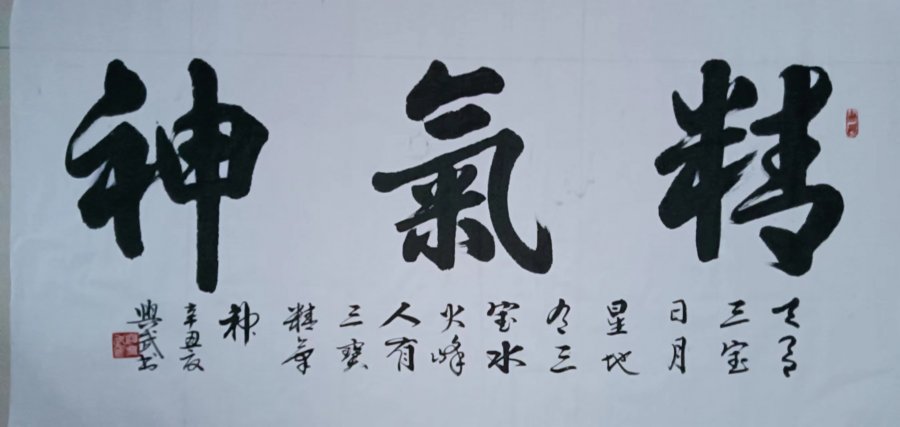 精氣神
天有
三宝
日月
星地
有三
宝水
火峰
人有
三寶
精氣
神
辛丑夏
興武书